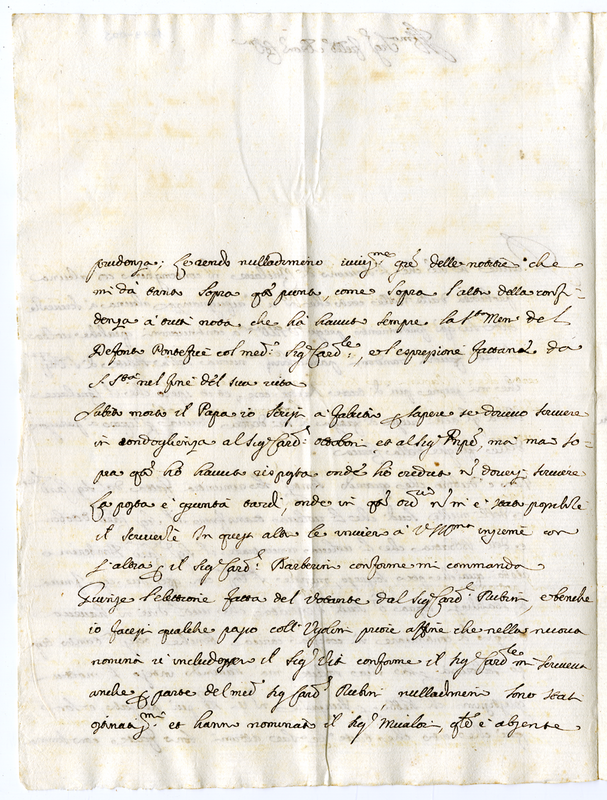 prudenza; Le rendo nulladimeno infin.me gre delle notitie che
mi dà tanto sopra qto punto, come sopra l'altro della confi-
denza à tutti nota, che hà havuto sempre la Sta Mem. del
Defonto Pontefice col med.o Sig.r Card.le, et l'espressione fattane da
S. Sta nel fine del sua vita
Subito morto il Papa io scrissi à sapere se dovevo scrivere
in condoglienza al Sig.r Card.l Ottoboni et al Sig.r Prpe, mà mai so-
pra qto hò havuto risposta onde hò creduto nn dover scrivere
La posta è giunta tardi, onde in qto ord.rio nn mi è stato possibile
il scriverle In quest' altro le invierò à V. Ill.ma insieme con
l'altra il Sig.r Card.l Barberini conforme mi commanda
Giunse l'elettione fatta del votante dal Sig.r Card.l Rubini, e benche
io facessi qualche passo coll' affine che nella nuova
nomina vi includessero il Sig.r Vit conforme il Sig.r Card.le mi scriveva
anche parte del med.o Sig.r Card.l Rubini, nulladimeno sono stati
ostinatiss.mi et hanno nominato il Sig.r, qle è absente